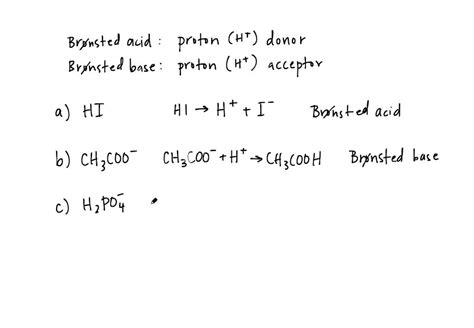 Brønsted acid : proton (H⁺) donor
Brønsted base : proton (H⁺) acceptor
a) HI HI → H⁺ + I⁻ Brønsted acid
b) CH₃COO⁻ CH₃COO⁻ + H⁺ → CH₃COOH Brønsted base
c) H₂PO₄⁻